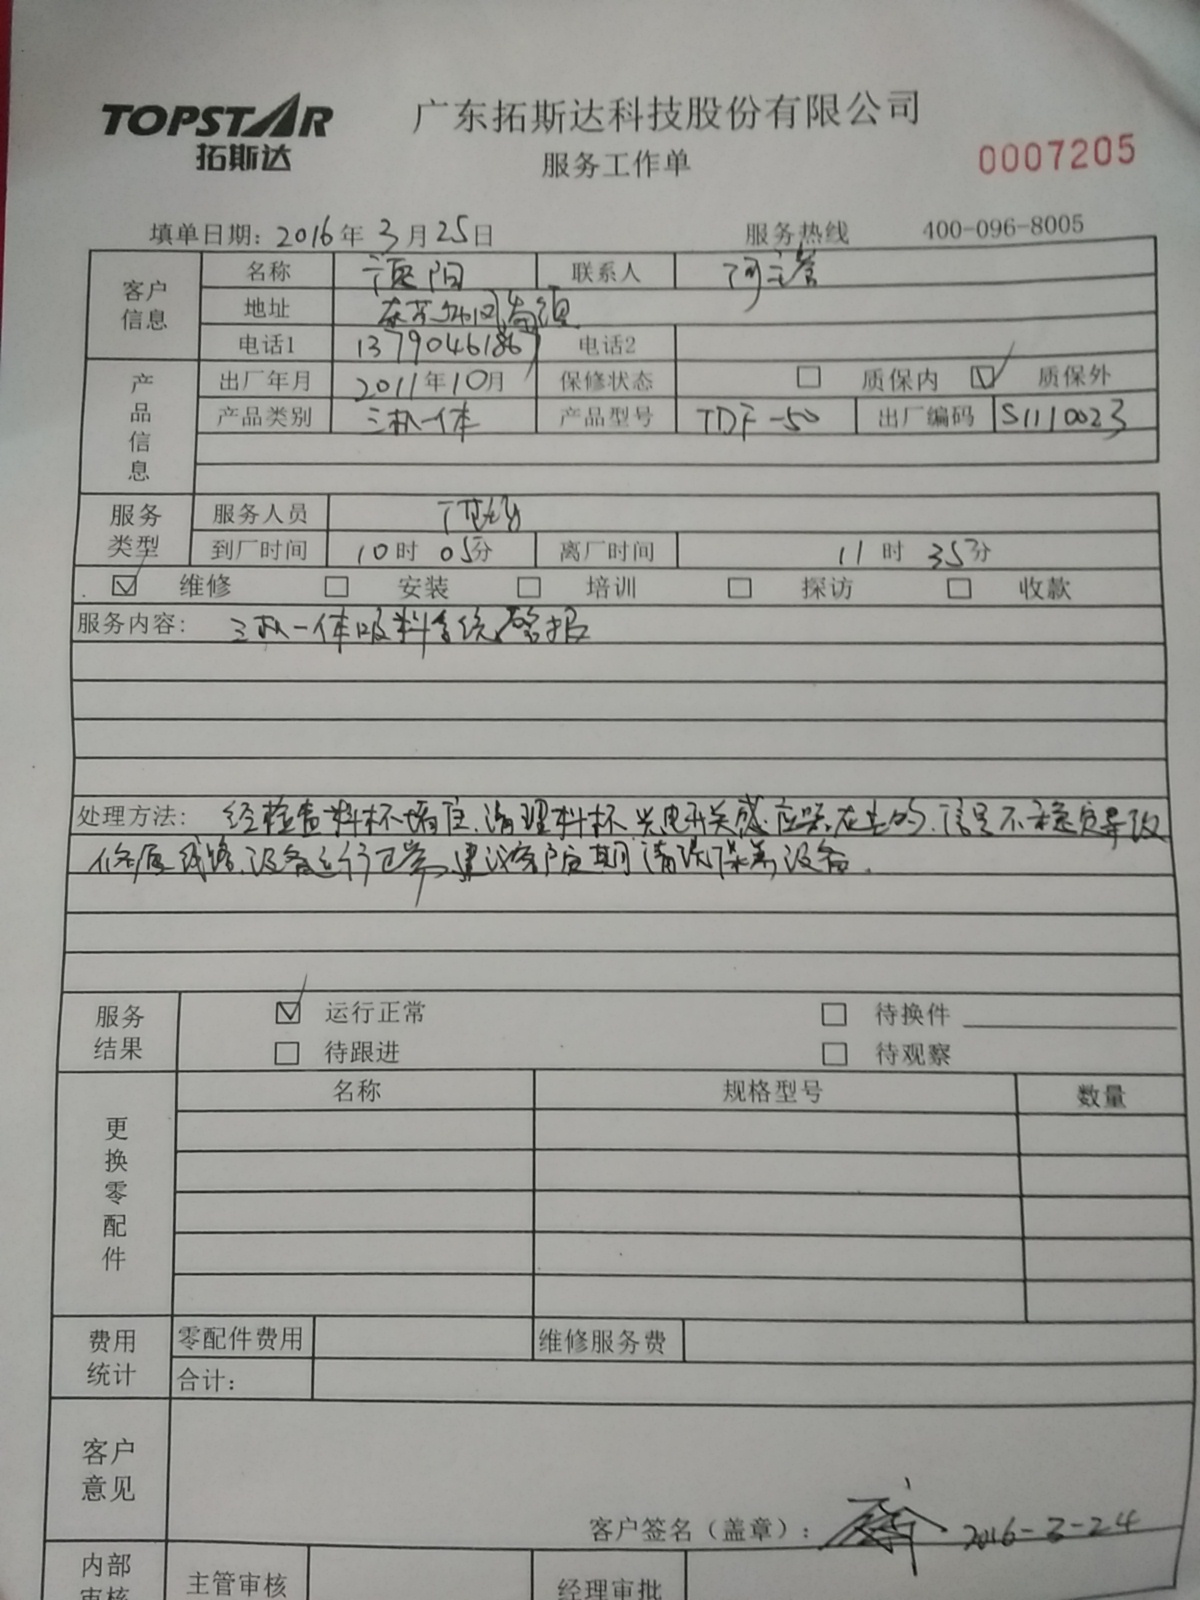 TOPSTAR
拓斯达
广东拓斯达科技股份有限公司
服务工作单
0007205
填单日期: 2016年 3月 25日
服务热线 400-096-8005
客户信息
名称 阳 联系人 主管
地址
电话1 13790461867 电话2
产品信息
出厂年月 2011年10月 保修状态 □ 质保内 ☑ 质保外
产品类别 三机一体 产品型号 TDF-50 出厂编码 S1110023
服务类型
服务人员
到厂时间 10时 05分 离厂时间 11时 35分
☑ 维修 □ 安装 □ 培训 □ 探访 □ 收款
服务内容: 三机一体吸料系统警报
处理方法: 经检查料杯堵住,清理料杯光电开关感应器,信号不稳定导致
修复线路,设备运行正常,建议客户定期清洗保养设备.
服务结果
☑ 运行正常 □ 待换件
□ 待跟进 □ 待观察
更换零配件
名称 规格型号 数量
费用统计
零配件费用 维修服务费
合计:
客户意见
客户签名(盖章): 2016-3-24
内部审核
主管审核 经理审批